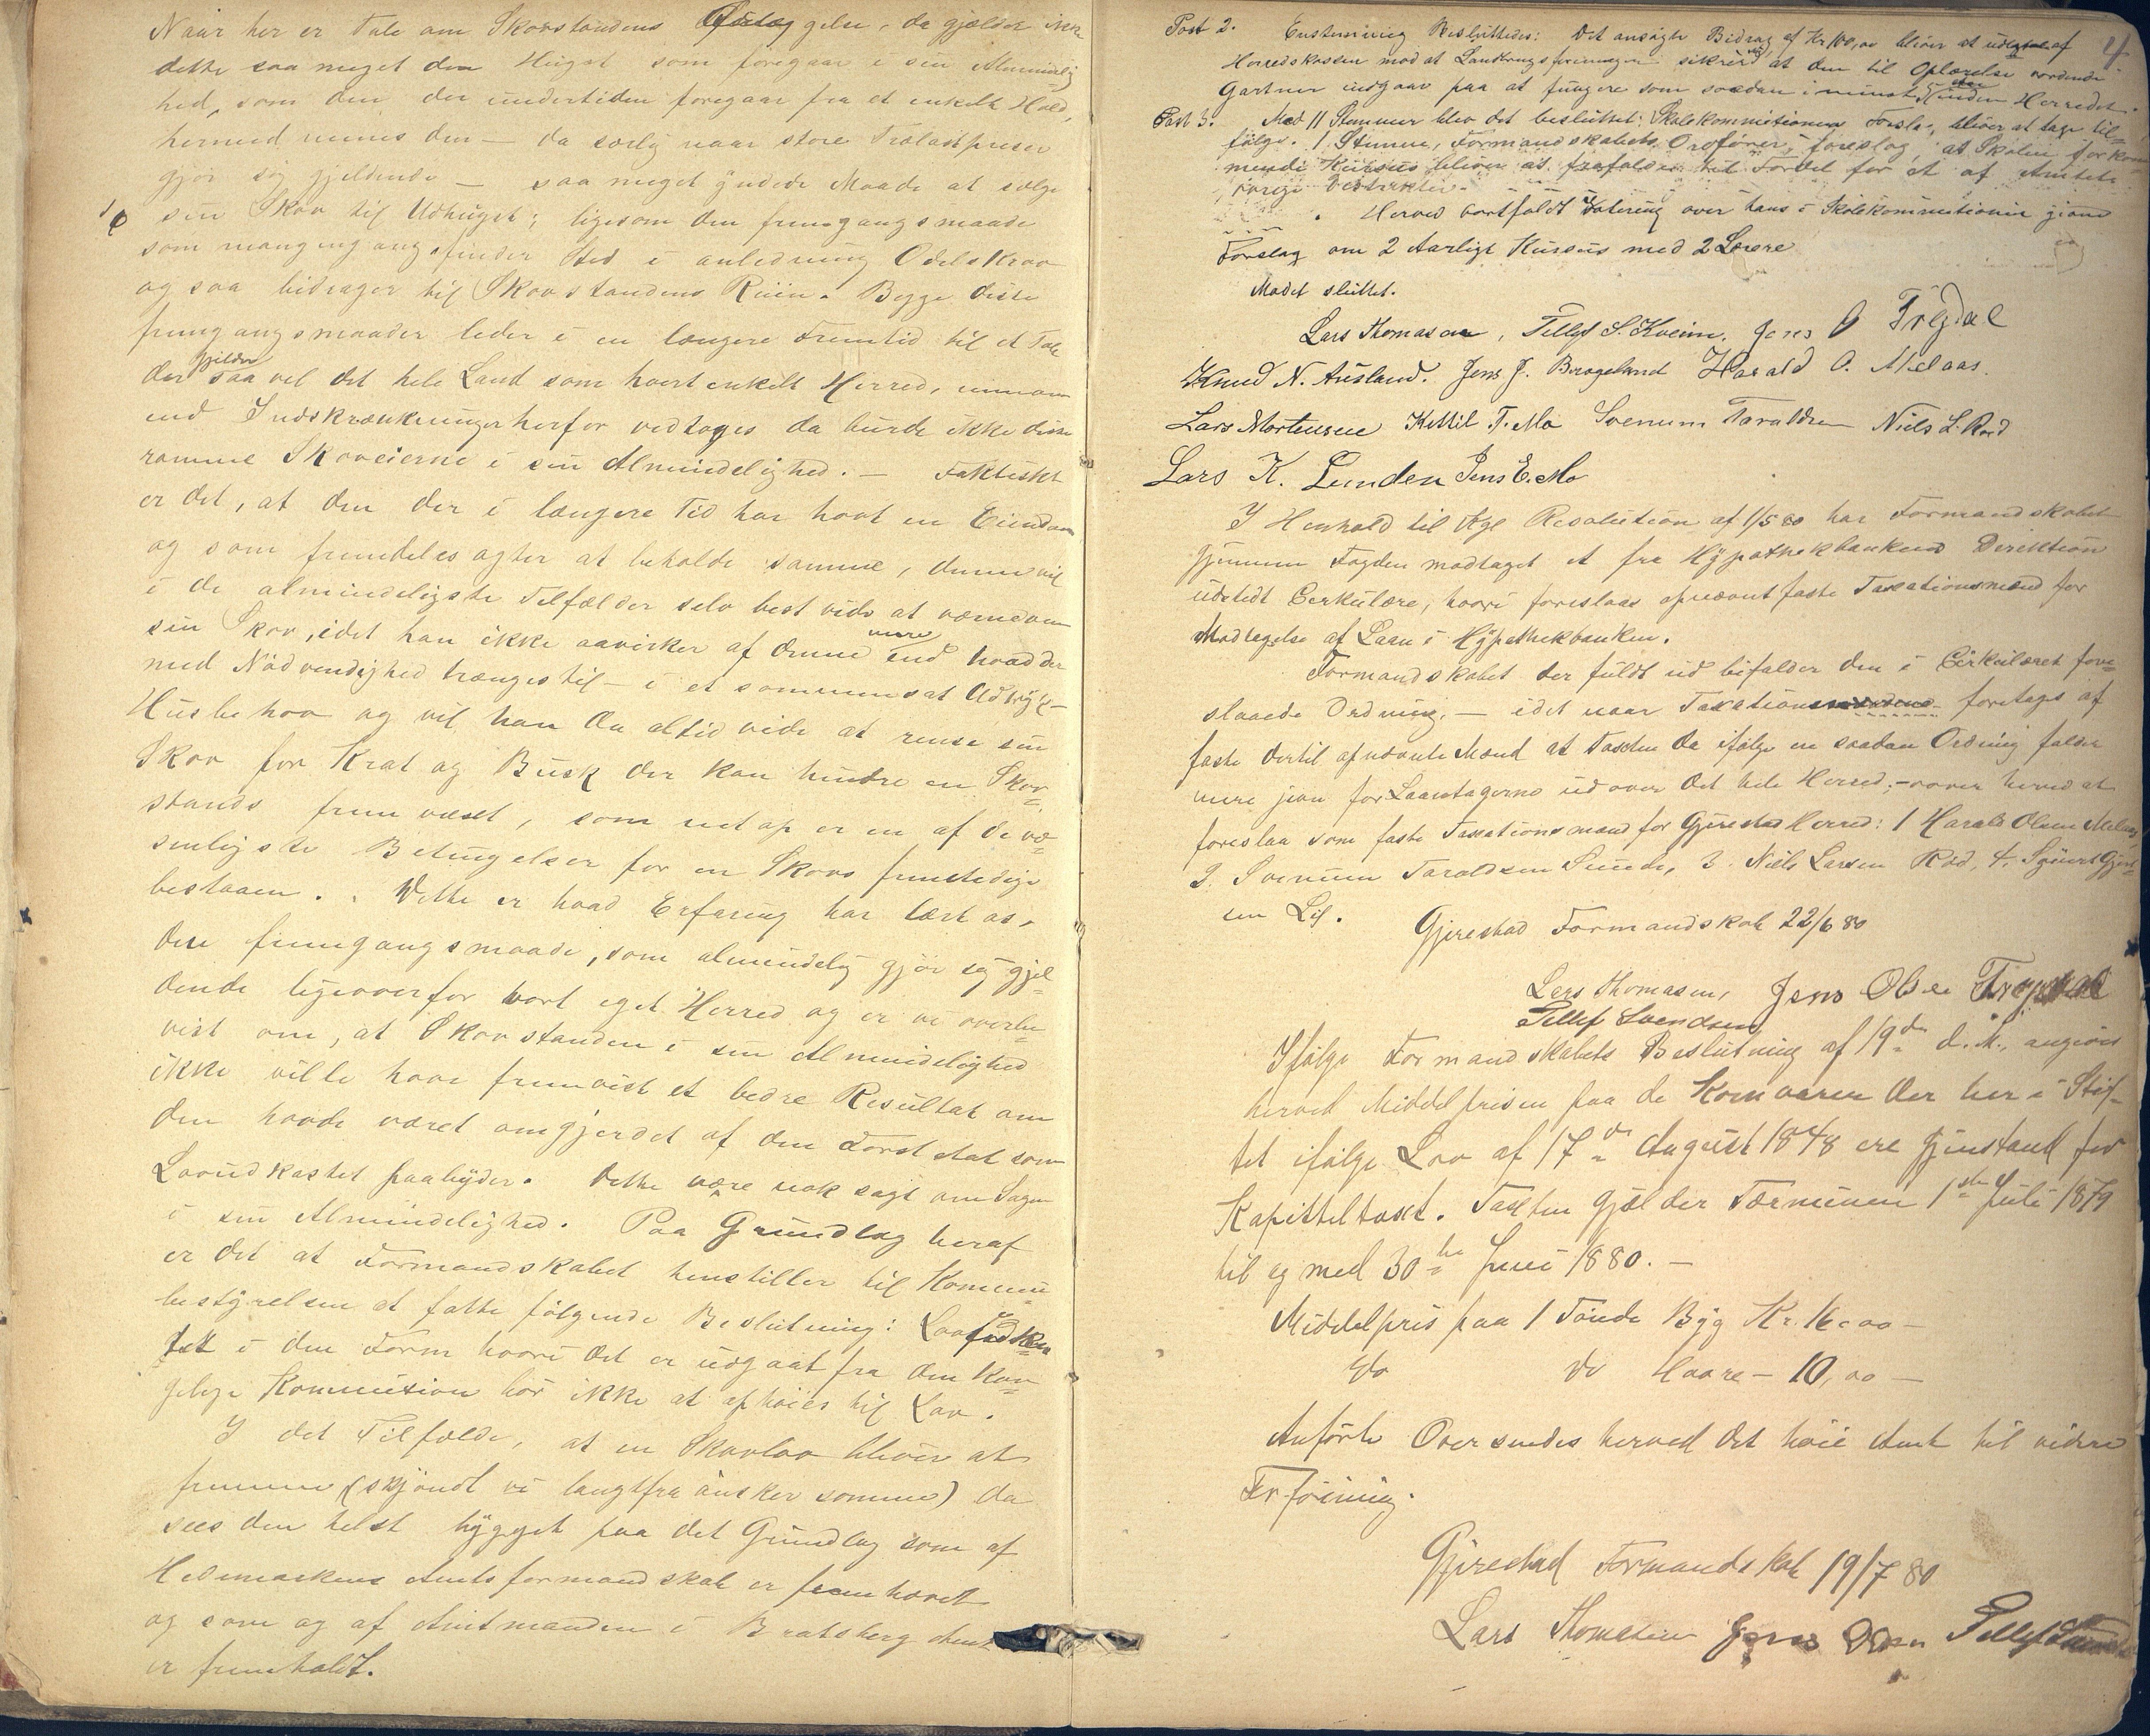 Naar her er Tale om Skovstandens Ødelæggelse, da gjælder ikke
dette saa meget den Hugst som foregaar i sin Almindelig
hed, som den der undertiden foregaar fra et enkelt Hold,
hermed menes den — da særlig naar store Trælastpriser
gjør sig gjeldende — saa meget yndede Maade at sælge
sin Skov til Udhugst; ligesom den fremgangsmaade
som mangengang finder Sted i anledning Odelskrav
og saa bidrager til Skovstandens Ruin. Begge disse
fremgangsmaader leder i en længere Fremtid til et Tab
der gjelder saavel det hele Land som hvert enkelt Herred,
end Indskrænkninger herfor vedtages da burde ikke disse
ramme Skoveierne i sin Almindelighed. — Faktiskt
er det, at den der i længere Tid har havt en Eiendom
og som fremdeles agter at beholde samme, denne vil
i de almindeligste Tilfælder selv best vide at værne om
sin Skov, idet han ikke aavirker af denne mere end hvad der
med Nødvendighed trænges til — i et sammensat Udtryk —
Husbehov og vil han da altid vide at rense sin
Skov for Krat og Busk der kan hindre en Skov=
stands fremvæxt, som netop er en af de væ=
sentligste Betingelser for en Skovs fremtidige
bestaaen. Dette er hvad Erfaring har lært os,
den fremgangsmaade, som almindelig gjør sig gjel=
dende ligeoverfor vort eget Herred og er vi overbe=
vist om, at Skovstanden i sin Almindelighed
ikke ville have fremvist et bedre Resultat om
den havde været omgjerdet af den Forstetat som
Lovudkastet paabyder. Dette være nok sagt om Sagen
i sin Almindelighed. Paa Grundlag heraf
er det at Formandskabet henstiller til Kommune
bestyrelsen at fatte følgende Beslutning: Lovudkas
tet i den Form hvori det er udgaat fra den Kon=
gelige Kommission bør ikke at ophøies til Lov.
I det Tilfælde, at en Skovlov bliver at
fremme (skjøndt vi langtfra ønsker samme) da
sees den helst bygget paa det Grundlag som af
Hedemarkens Amtsformandskab er fremhævet
og som og af Amtmanden i Bratsberg Amt
er fremholdt.
4
Post 2. Enstemmig Besluttedes: Det ansøgte Bidrag af Kr 100,00 bliver at udrede af
Herredskassen mod at Landbrugsforeningen sikrer sig, at den til Oplærelse vordende
Gartner indgaar paa at fungere som saadan i mindst inden Herredet.
Post 3. Med 11 Stemmer blev det besluttet: Skolekommisionens Forslag bliver at tage til=
følge. 1 Stemme, Formandskabets Ordfører, foreslog, at Skolen forkom
mende Kursus bliver at frafalde til Fordel for et af Amtets
øvrige Distrikter.
Herved bortfaldt Votering over hans i Skolekommisionen gjorde
Forslag om 2 Aarligt Kursus med 2 Lærere
Mødet sluttet.
Lars Thomasen, Tellef S. Kveim. Jens O Trydal
Knud N. Ausland. Jens J. Brageland Harald O. Melaas.
Lars Mortensen Kittil T. Mo Svenum Taraldsen Niels L. Rød
Lars K. Lunden Jens E. Mo
I Henhold til Kgl Resolution af 1/5 80 har Formandskabet
gjennem Fogden modtaget et fra Hypothekbankens Direktion
udstedt Cerkulære, hvori foreslaaes opnævnt faste Taxationsmænd for
Modtagelse af Laan i Hypothekbanken.
Formandskabet der fuldt ud bifalder den i Cirkulæret fore=
slaaede Ordning, — idet naar Taxationen foretages af
faste dertil opnævnte Mænd at Taxten da ifølge en saadan Ordning falder
mere jevn for Laantagerne udover det hele Herred; — vover herved at
foreslaa som faste Taxationsmænd for Gjerestad Herred: 1 Harald Olsen Melaas,
2. Svenum Taraldsen Sunde, 3. Niels Larsen Rød, 4. Sjiuert Gjer=
sen Lif.
Gjerestad Formandskab 22/6 80
Lars Thomasen, Jens Olsen Trydal
Tellef Svendsen
Ifølge Formandskabets Beslutning af 19de d. M., angives
herved Middelprisen paa de Kornvarer der her i Stif=
tet ifølge Lov af 17de August 1848 ere Gjenstand for
Kapitteltaxt. Taxten gjælder Terminen 1ste Juli 1879
til og med 30te Juni 1880. —
Middelpris paa 1 Tønde Byg Kr. 16,00 —
do do Havre — 10,00 —
Anførte Oversendes herved det høie Amt til videre
Forføining.
Gjerestad Formandskab 19/7 80
Lars Thomasen Jens Olsen Tellef Svendsen